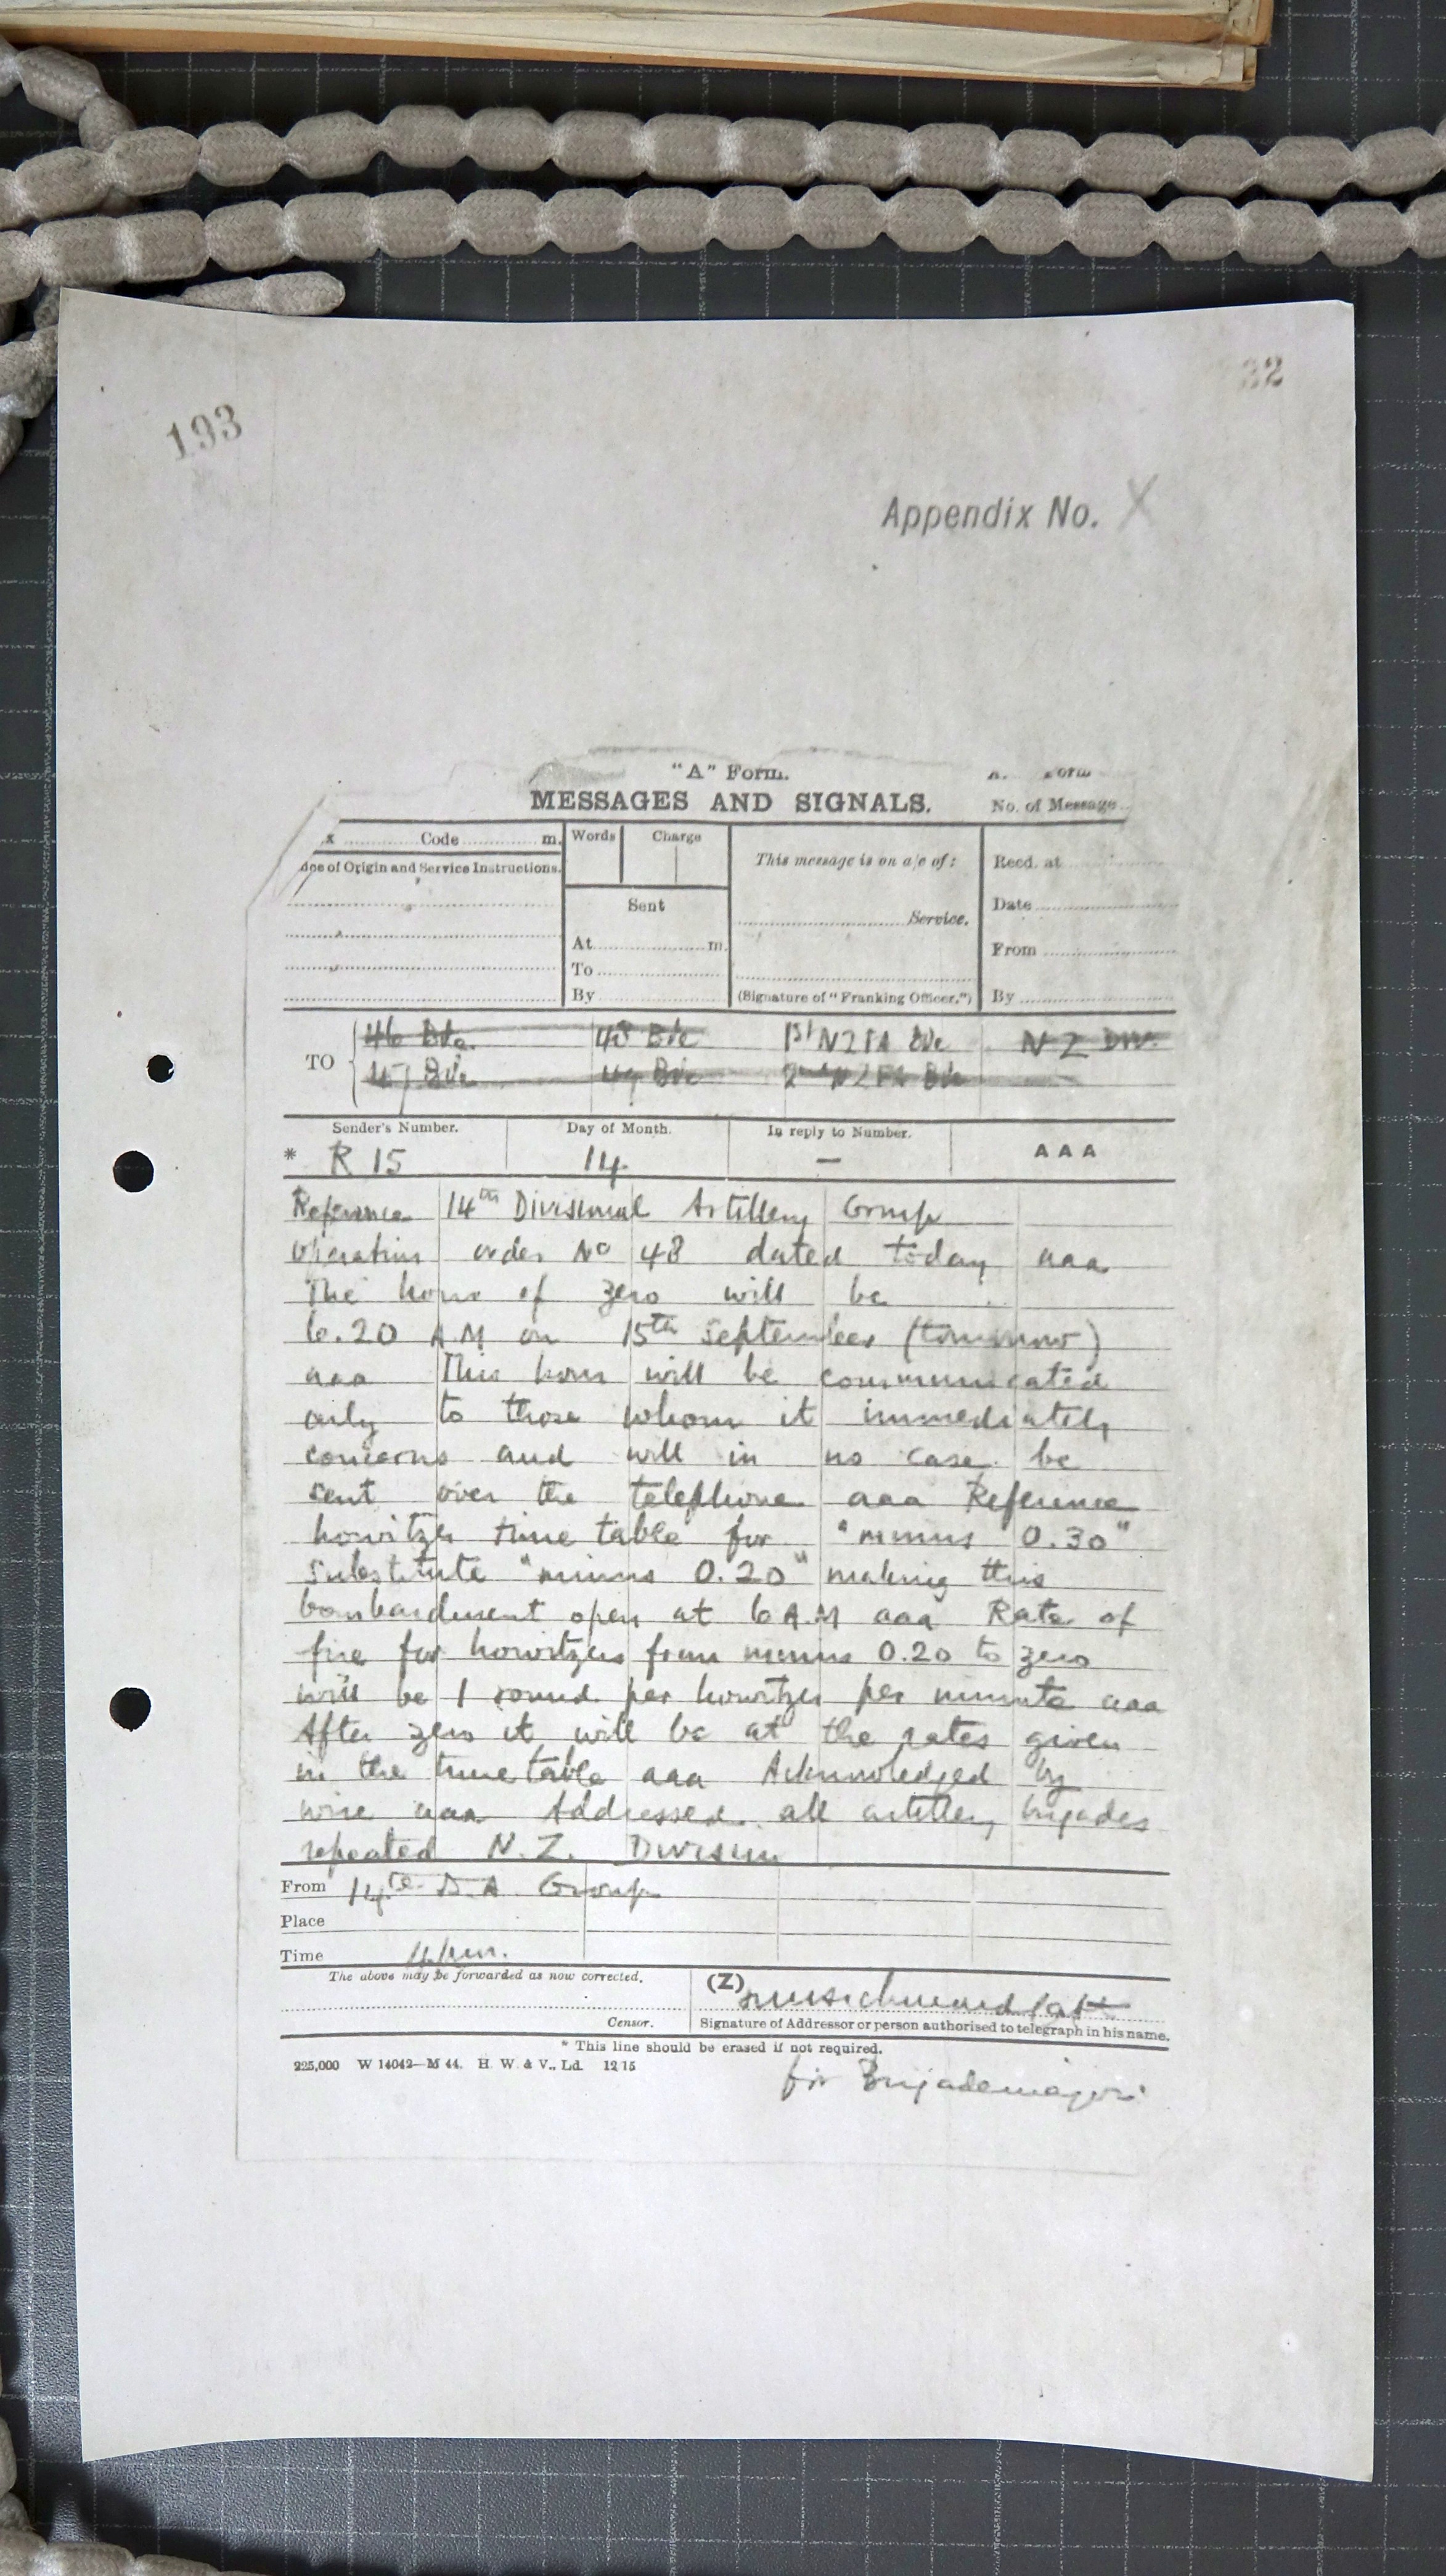 193
32
Appendix No. X
"A" Form.
A. Form
MESSAGES AND SIGNALS.
No. of Message
x Code m.
Words Charge
This message is on a/c of:
Recd. at
of Origin and Service Instructions.
Sent
Service.
Date
At m.
From
To
By
(Signature of "Franking Officer.")
By
TO
46 Bde 48 Bde 1st NZFA Bde NZ Div.
47 Bde 49 Bde 2nd NZFA Bde
Sender's Number. Day of Month. In reply to Number.
* R 15 14 — AAA
Reference 14th Divisional Artillery Group
Operation order No 48 dated today aaa
The hour of zero will be
6.20 A.M on 15th September (tomorrow)
aaa This hour will be communicated
only to those whom it immediately
concerns and will in no case be
sent over the telephone aaa Reference
howitzer time table for "minus 0.30"
substitute "minus 0.20" making this
bombardment open at 6 A.M aaa Rate of
fire for howitzers from minus 0.20 to zero
will be 1 round per howitzer per minute aaa
After zero it will be at the rates given
in the time table aaa Acknowledged by
wire aaa Addressed all artillery brigades
repeated N.Z. Division
From 14th D.A Group
Place
Time 4 pm.
The above may be forwarded as now corrected.
(Z)
Censor.
Signature of Addressor or person authorised to telegraph in his name.
* This line should be erased if not required.
225,000 W 14042—M 44. H. W. & V., Ld. 12/15
for Brigade major